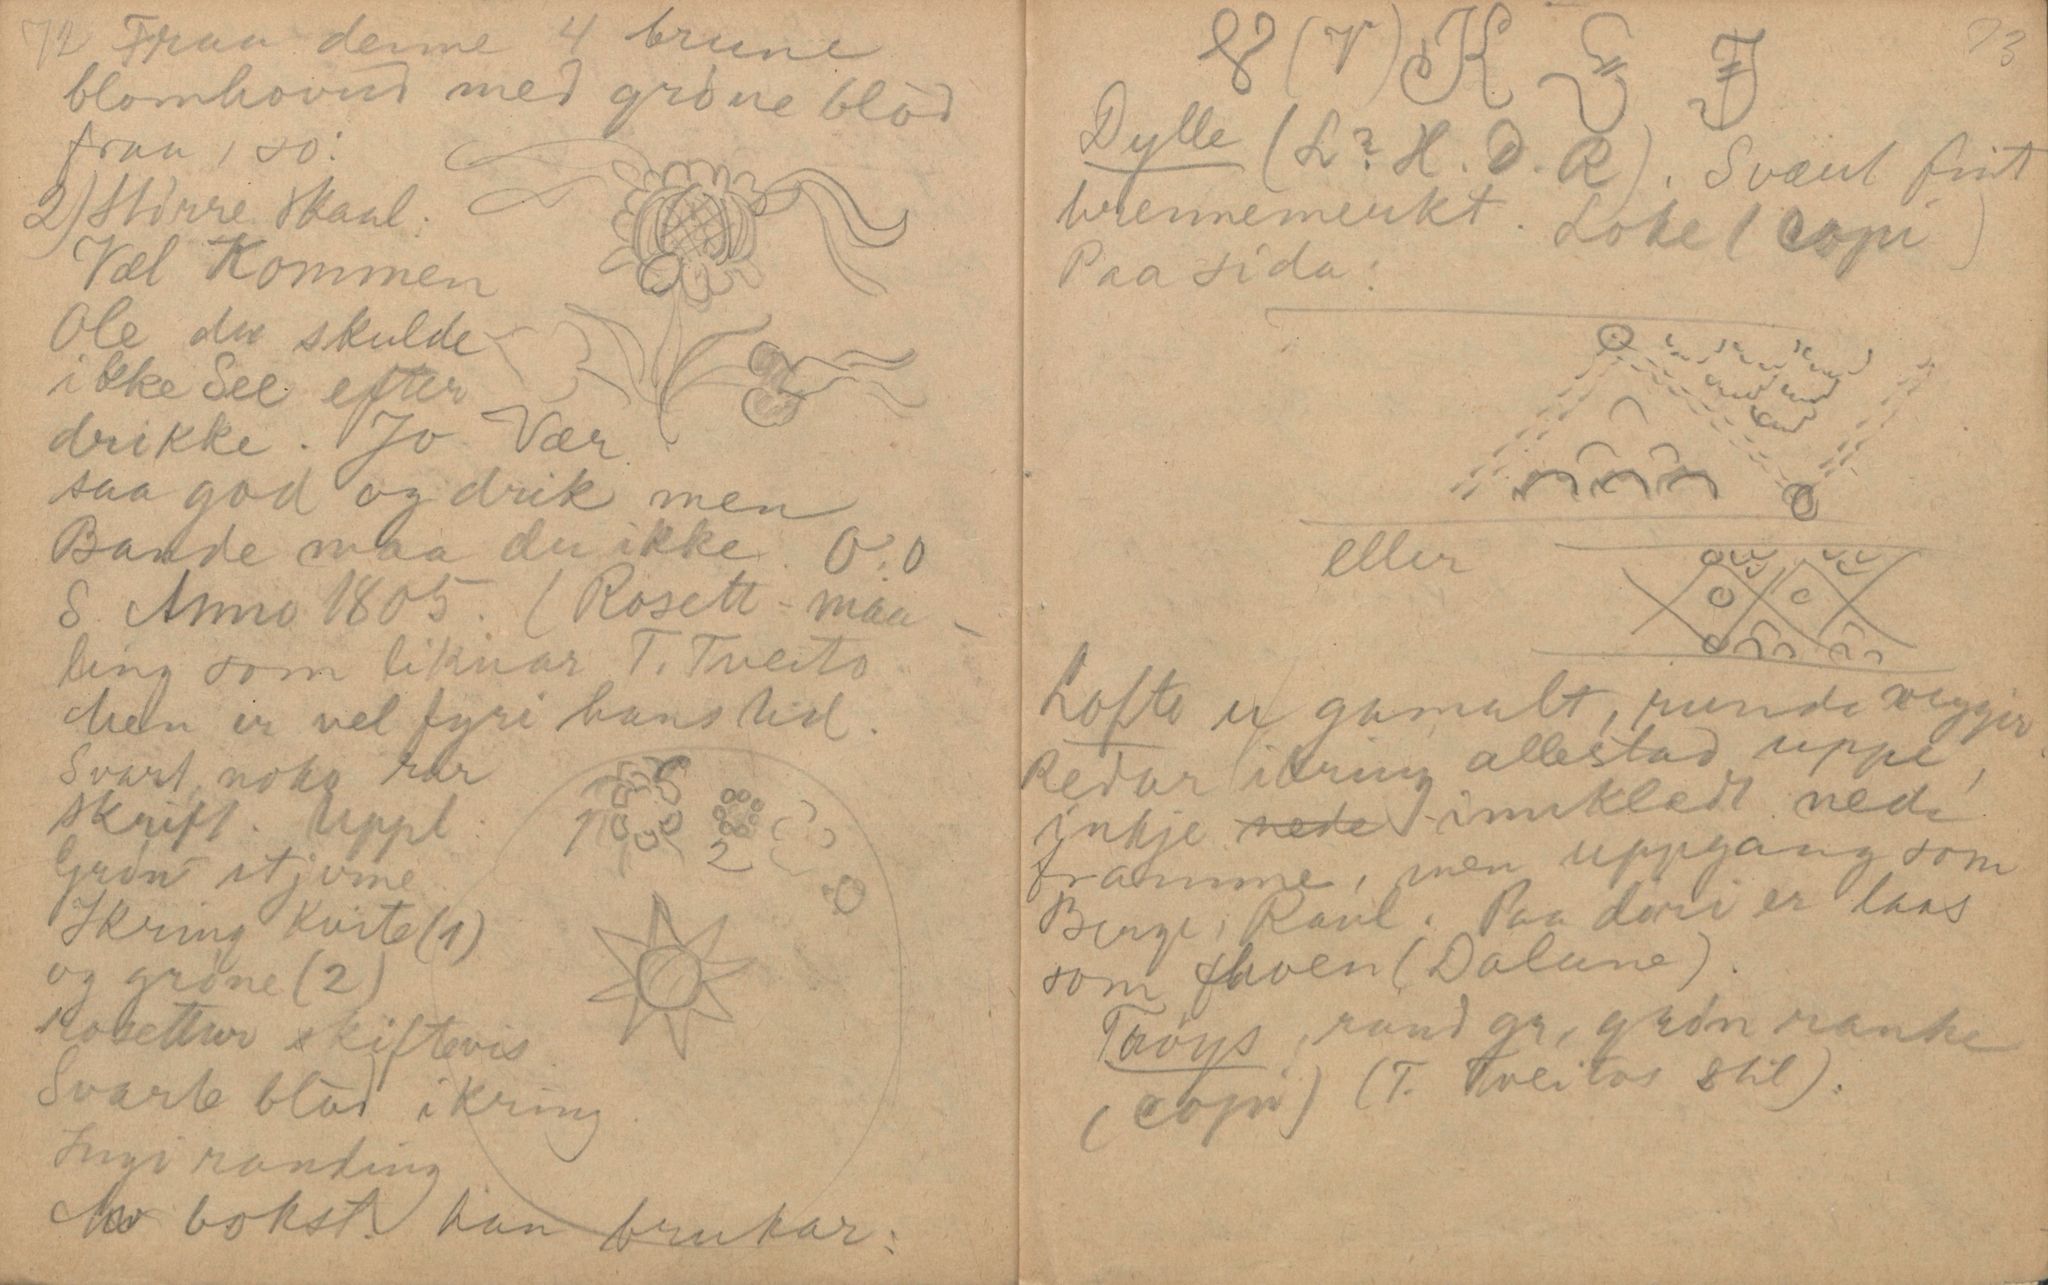 72 Fraa denne 4 brune
blomhovud med gröne blöd
fraa, so:
2) Större skaal:
Væl Kommen
Ole du skulde
ikke See efter
drikke. Jo Vær
saa god og drik men
Bande maa du ikke. O. O
S. Anno 1805. (Rosett-maa-
ling som liknar T. Tveito
men er vel fyri hans tid.
Svart, noko rar
skrift. Uppl.
Grön stjerne
Ikring kvite (1)
og gröne (2)
rosettur skiftevis
Svarte blöd ikring
Ingi randing
bokst. han brukar:
1
2
73
(V) K
Dylle (L? H. D. R). Svært fint
brennemerkt. Loke (copi)
Paa sida:
eller
Lofte er gamalt, runde veggir
Redar ikring allestad uppe,
inkje nede innkledt nede
framme, men uppgang som
Berge, Raul. Paa döri er laas
som (Dalane).
Tröys, rund gr, grön ranke
(copi) (T. Tveitos stil).